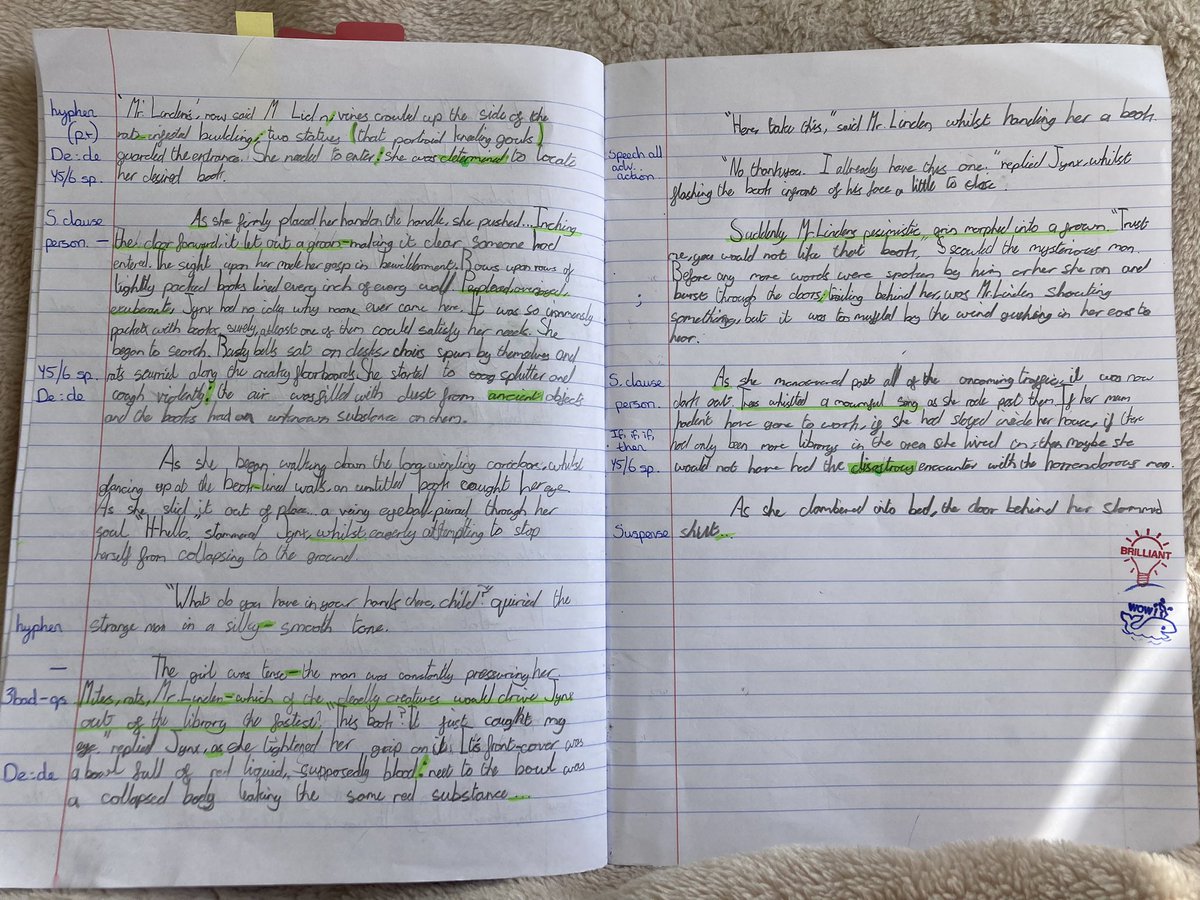 hyphen
(p.r)
De:de
Y5/6 sp.
S. clause
person.
Y5/6 sp.
De:de
hyphen
3bad-qs
De:de
"Mr. Linden's", now said M Lid n, vines crawled up the side of the
rat-infested building; two statues (that portrait kneeling gouls)
guarded the entrance. She needed to enter: she was determined to locate
her desired book.
As she firmly placed her hand on the handle, she pushed... Inching
the door forward, it let out a groan-making it clear someone had
entered. The sight upon her made her gasp in bewilderment. Rows upon rows of
tightly packed books lined every inch of every wall.
exuberant, Jynx had no idea why noone ever came here. It was so immensly
packed with books, surely, atleast one of them could satisfy her needs. She
began to search. Rusty bells sat on desks, chairs spun by themselves and
rats scurried along the creaky floorboards. She started to splutter and
cough violently: the air was filled with dust from ancient objects
and the books had an unknown substance on them.
As she began walking down the long winding coridoor, whilst
glancing up at the book-lined walls, an untitled book caught her eye.
As she slid it out of place... a veiny eyeball pierced through her
soul. "H-hello, stammered Jynx, whilst eagerly attempting to stop
herself from collapsing to the ground.
"What do you have in your hands there, child?" quiried the
strange man in a silky-smooth tone.
The girl was tense-the man was constantly pressuring her.
Mites, rats, Mr. Linden-which of the deadly creatures would drive Jynx
out of the library the fastest? "This book? It just caught my
eye." replied Jynx, as she tightened her grip on it. It's front-cover was
a bowl full of red liquid, -supposedly blood: next to the bowl was
a collapsed body leaking the same red substance...
Speech all
adv.
action.
;
S. clause
person.
If, if, if,
then
Y5/6 sp.
Suspense
"Here, take this," said Mr. Linden whilst handing her a book.
"No thankyou. I already have this one." replied Jynx, whilst
flashing the book infront of his face a little to close.
Suddenly, Mr Lindens pesimistic grin morphed into a frown. "Trust
me, you would not like that book," scauled the mysterious man.
Before any more words were spoken by him or her she ran and
burst through the doors; trailing behind her, was Mr. Linden shouting
something, but it was too muffled by the wind gushing in her ears to
hear.
As she manouvered past all of the oncoming traffic, it was now
dark out, trees whistled a mournful song as she rode past them. If her mum
hadn't have gone to work, if she had stayed inside her house, if there
had only been more librarys in the area she lived in, then maybe she
would not have had the disastrous encounter with the horrendorous man.
As she clambered into bed, the door behind her slammed
shut...
BRILLIANT
WOW!